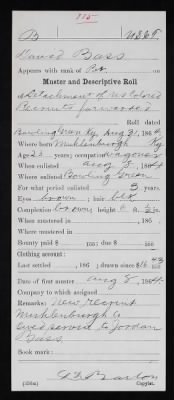 B | U.S.C.T.
David Bass
Appears with rank of Pvt. on
Muster and Descriptive Roll
Detachment of U.S. Colored
Recruits forwarded
Bowling Green Ky Aug 31, 1864
Where born Muhlenburgh Ky
Age 23 years; occupation
When enlisted Aug 8, 1864
Where enlisted Bowling Green
For what period enlisted 3 years.
Eyes brown; hair blk
Complexion brown; height 6 ft. in.
When mustered in , 186 .
Where mustered in
Bounty paid $ 100; due $ 100
Clothing account:
Last settled , 186 ; drawn since $
Date of first muster Aug 8, 1864.
Company to which assigned
Remarks: New recruit
Muhlenburgh Co
Owes service to Jordan
Bass.
Book mark:
Barton
Copyist.